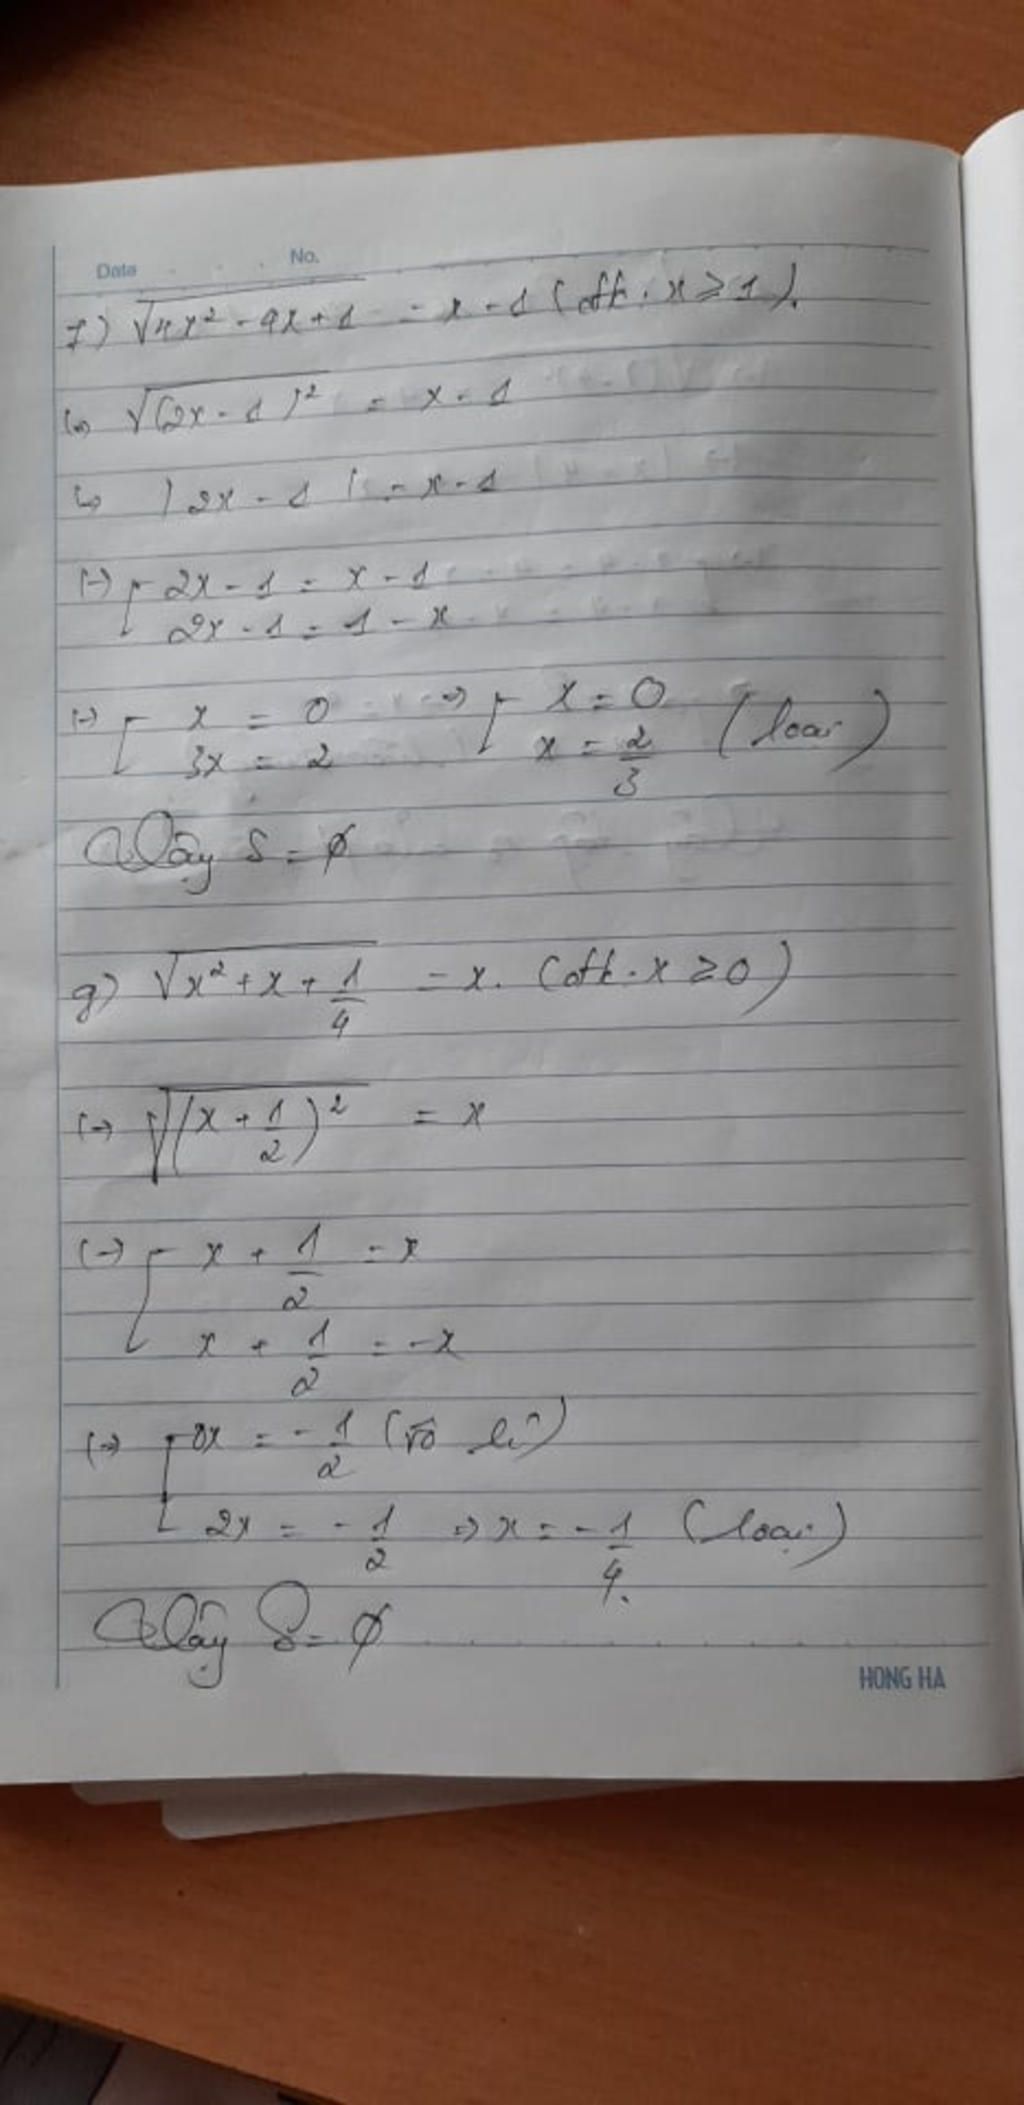 Date No.
f) √4x² - 4x + 1 = x - 1 (đk: x ≥ 1).
(=) √(2x - 1)² = x - 1
(=) |2x - 1| = x - 1
(=) [ 2x - 1 = x - 1
2x - 1 = 1 - x
(=) [ x = 0 (=) [ x = 0 (loại)
3x = 2 x = 2/3
Vậy S = ∅
g) √x² + x + 1/4 = x. (đk: x ≥ 0)
(=) √(x + 1/2)² = x
(=) [ x + 1/2 = x
x + 1/2 = -x
(=) [ 0x = -1/2 (vô lí)
2x = -1/2 => x = -1/4. (loại)
Vậy S = ∅
HONG HA